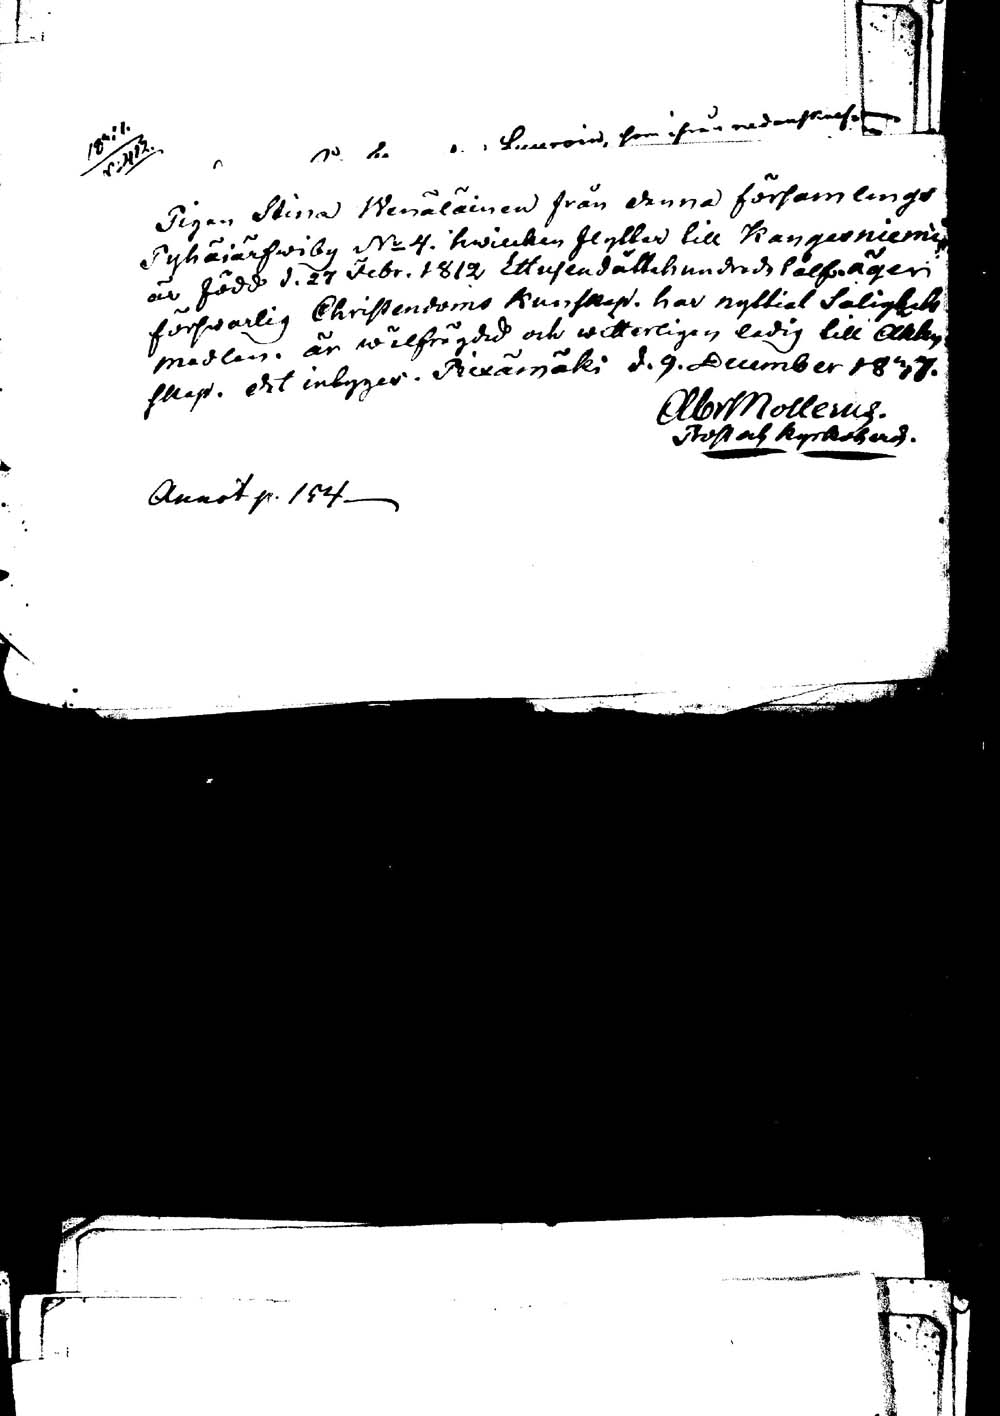 som ifrån
Pigan Stina Wenäläinen från denna församlings
Pyhäjärfwi by No 4. hwilcken flyttar till Kangasniemi,
är född d. 27 Febr. 1812 Ettusendåttahundradetolf. äger
förswarlig Christendoms Kunskap. har nyttiat Salighets
medlen. är wälfrägdad och witterligen ledig till Äkten
skap. det intygar. Piexämäki d. 9. December
Mollerus.
Prost och Kyrkoherde.
Annot p. 154